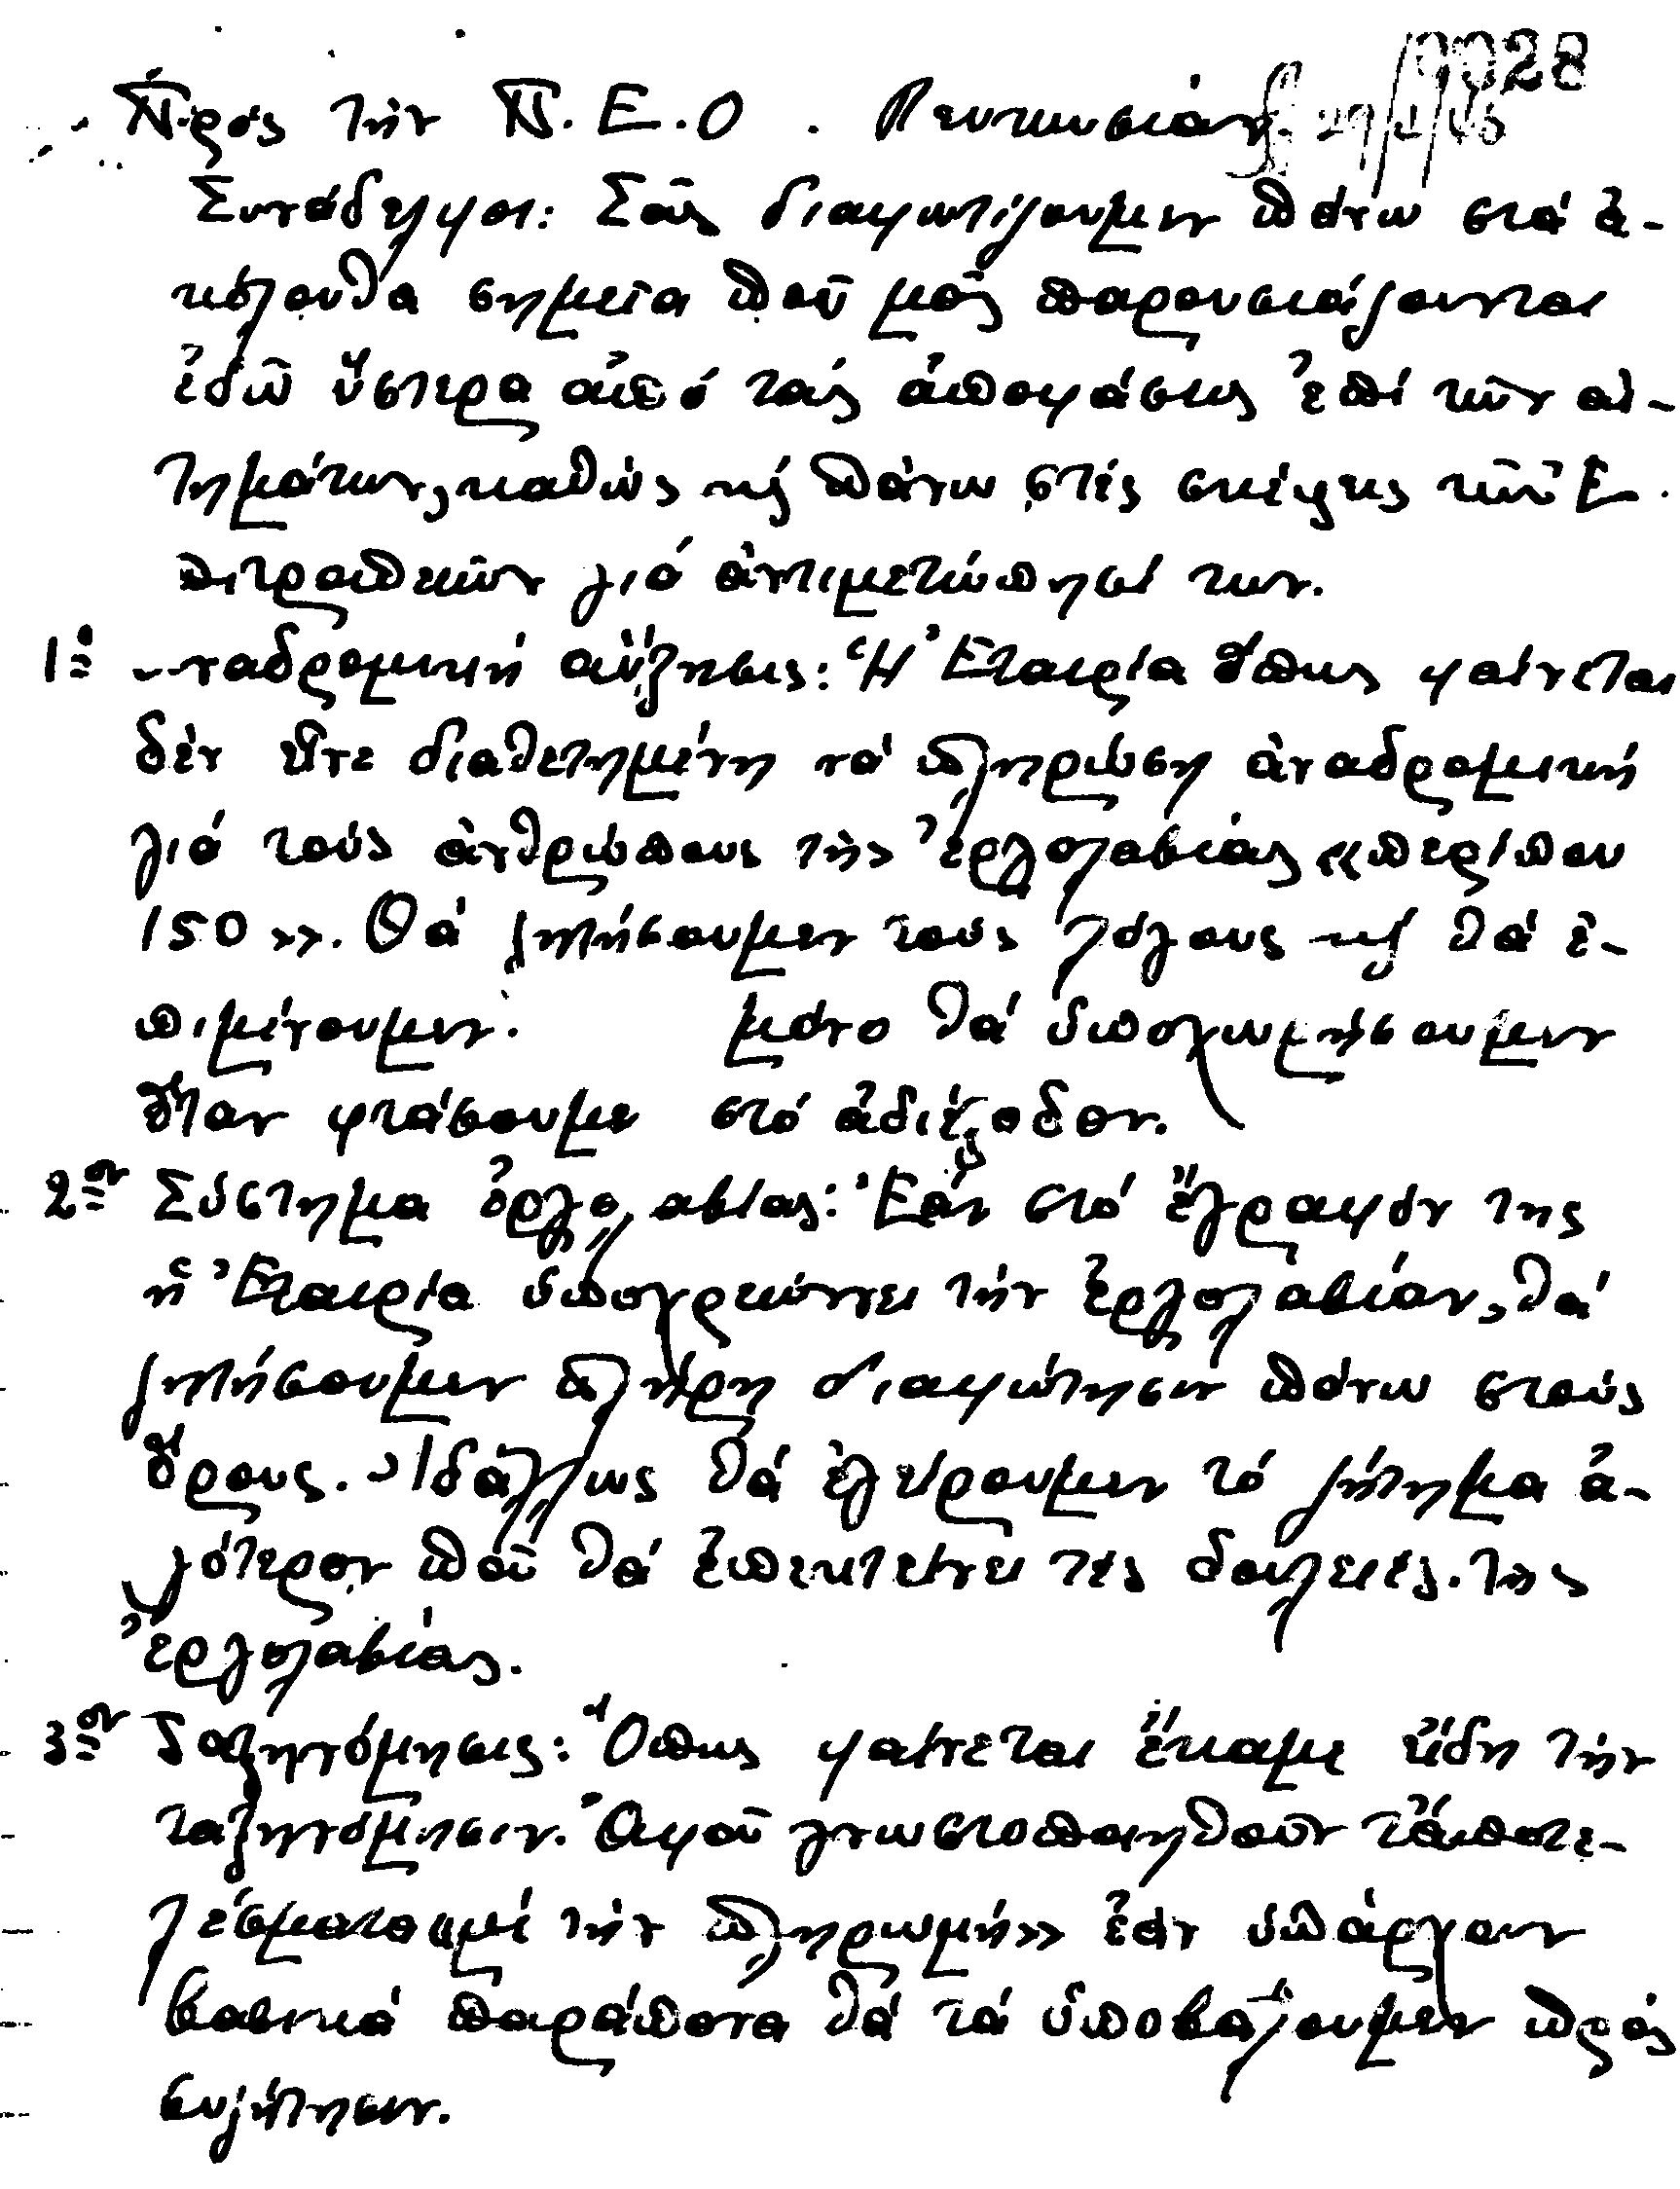 Πρός τήν Π.Ε.Ο. Λευκωσίαν
9028
Συνάδελφοι: Σᾶς διαφωτίζουμεν πάνω στά ἀ-
κόλουθα σημεῖα ποῦ μᾶς παρουσιάζονται
ἐδῶ ὕστερα ἀπό τάς ἀποφάσεις ἐπί τῶν αἰ-
τημάτων, καθώς κέ πάνω στές σκέψεις τῶν Ἐ.
πιτροπικῶν γιά ἀντιμετώπησί των.
1ον ναδρομική αὔξησις: Ἡ Ἐταιρία ὅπως φαίνεται
δέν εἶνε διαθετημένη νά πληρώση ἀναδρομική
γιά τούς ἀνθρώπους τῆς ἐργολαβίας «περίπου
150». Θά ζητήσουμεν τούς λόγους κέ θά ἐ-
πιμένουμεν. μόνο θά ὑποχωρήσουμεν
ὅταν φτάσουμε στό ἀδιέξοδον.
2ον Σύστημα ὀργολαβίας: Ἐάν στό ἔγραφόν της
ἡ Ἐταιρία ὑποχρεώννει τήν ἐργολαβίαν, θά
ζητήσουμεν πλήρη διαφώτησιν πάνω στούς
ὅρους. Ἰδάλλως θά ἐγείρουμεν τό ζήτημα ἀ-
γότερον ποῦ θά ἐπεκτείνει τές δουλειές της
ἐργολαβίας.
3ον Ταξηνόμησις: Ὅπως φαίνεται ἔκαμε εἴδη τήν
ταξηνόμησιν. Ἀφοῦ γνωστοποιηθοῦν τἄποτε-
λέσματα «μέ τήν πληρωμή» ἐάν ὑπάρχουν
βασικά παράπονα θά τά ὑποβάλουμεν πρός
συζήτησιν.